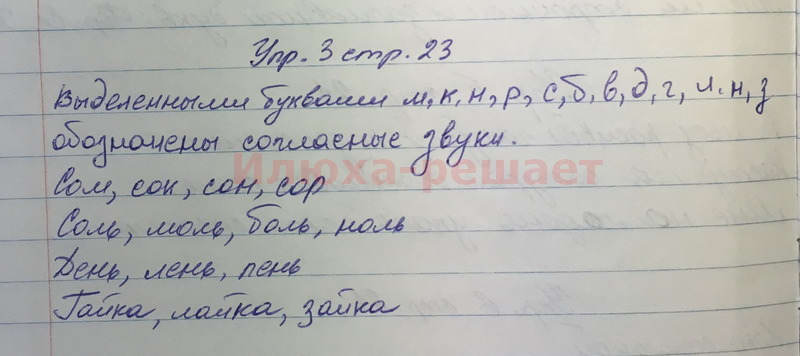 Упр. 3 стр. 23
Выделенными буквами м, к, н, р, с, б, в, д, г, л, н, з
обозначены согласные звуки.
Илюха-решает
Сом, сок, сон, сор
Соль, моль, боль, ноль
День, лень, пень
Гайка, лайка, зайка